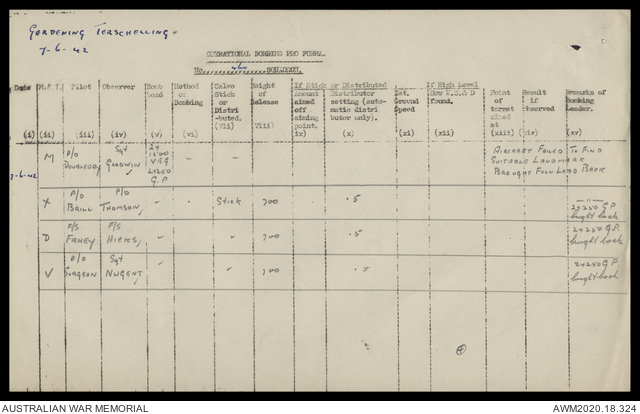 GARDENING TERSCHELLING
7-6-42
OPERATIONAL BOMBING PRO FORMA.
No. SQUADRON.
Date Pilot Observer Bomb Load Method of Bombing Salvo Stick or Distri-buted. Height of Release If Stick or Distributed Amount aimed off aiming point. Distributor setting (auto-matic distri butor only). Est. Ground Speed If High Level How U.S.& D found. Point of target aimed at Result if observed Remarks of Bombing Leader.
(i) (ii) (iii) (iv) (v) (vi) (vii) (viii) ix) (x) (xi) (xii) (xiii) (iv) (xv)
7-6-42 M P/O DOUBLEDAY Sgt GOODWIN 2x 1500 VEG 2x250 G.P - - AIRCRAFT FAILED TO FIND SUITABLE LANDMARK BROUGHT FULL LOAD BACK
X P/O BRILL P/O THOMSON, " Stick 700 .5 2x250 G.P bought back
D F/S FAHEY F/S HICKS, " " 700 .5 2x250 G.P bought back
V P/O SURGEON Sgt NUGENT, " " 700 .5 2x250 G.P bought back
AUSTRALIAN WAR MEMORIAL
AWM2020.18.324